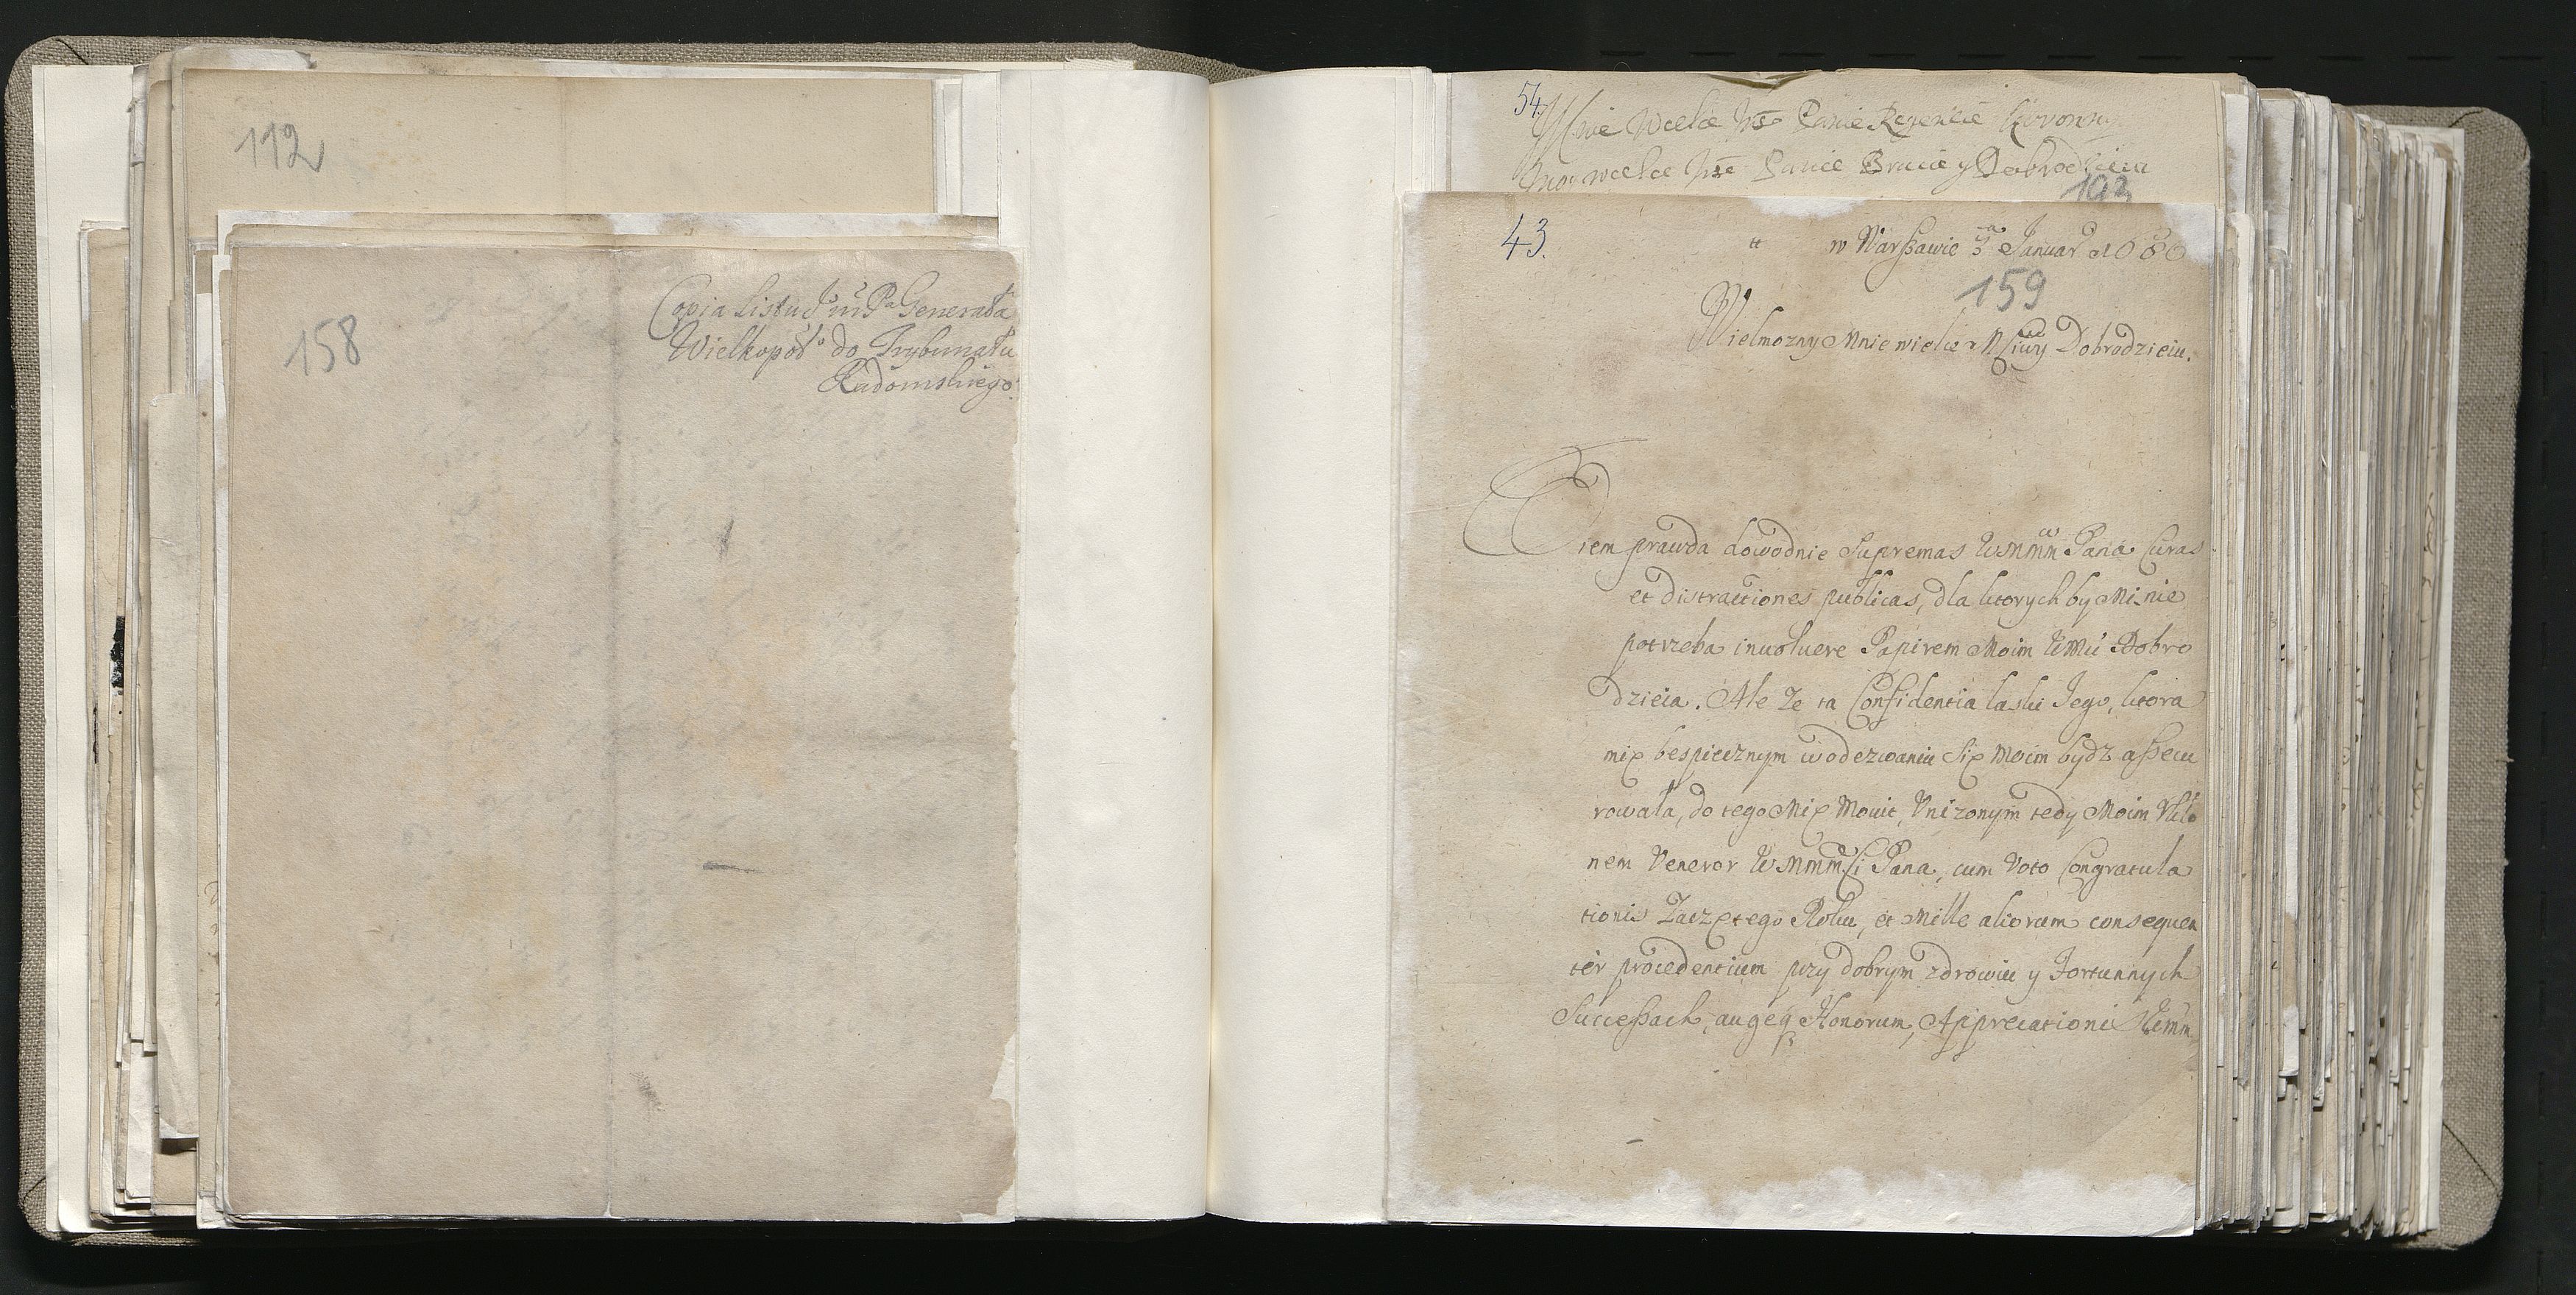 112
158
Copia Listu Jm̃ Pa Generała
Wielkopolo do Trybunału
Radomskiego
54.
Mnie Wielce Panie Regencie Koronny
Moy wielce Panie Bracie y Dobrodzieiu
193
43.
w Warszawie 3a Januar 1680
159
Wielmozny Mnie wielce Mciwy Dobrodzieiu.
Wiem prawda dowodnie Supremas WMMM Pana Curas
et distractiones publicas, dla ktorych by Mi nie
potrzeba inuoluere Papirem Moim Dobro
dzieia. Ale Ze ta Confidentia laski Jego, ktora
mię bespiecznym w odezwaniu Się Moim bydz assecu
rowała, do tego Mię Mouit, Vnizonym tedy Moim Vkło
nem Veneror WMMMCi Pana, cum Voto Congratula
tionis Zaczętego Roku, et Mille aliorum consequen
ter procedentium przy dobrym zdrowiu y Fortunnych
Successach, augeq Honorum, Apprecationi